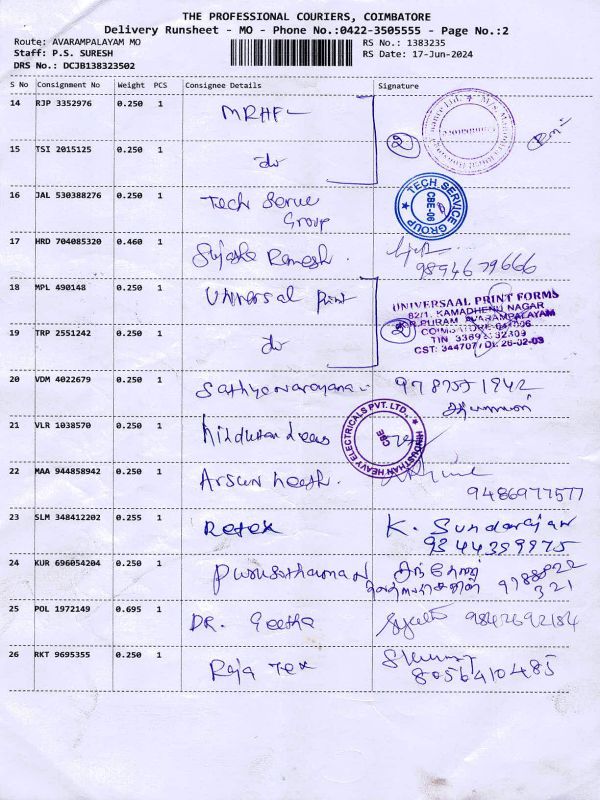 THE PROFESSIONAL COURIERS, COIMBATORE
Delivery Runsheet - MO - Phone No.:0422-3505555 - Page No.:2
Route: AVARAMPALAYAM MO RS No.: 1383235
Staff: P.S. SURESH RS Date: 17-Jun-2024
DRS No.: DCJB138323502
S No Consignment No Weight PCS Consignee Details Signature
14 RJP 3352976 0.250 1 MRHF ②
15 TSI 2015125 0.250 1 do
16 JAL 530388276 0.250 1 Tech Serve
Group
TECH SERVICE GROUP
CBE-06
17 HRD 704085320 0.460 1 Ramesh. 9894679666
18 MPL 490148 0.250 1 Universal Print
UNIVERSAAL PRINT FORMS
82/1, KAMADHENU NAGAR
PURAM, AVARAMPALAYAM
COIMBATORE-641006
TIN
CST: 344707/Dt. 26-02-03
19 TRP 2551242 0.250 1 do ②
20 VDM 4022679 0.250 1 Sathyanarayana
21 VLR 1038570 0.250 1
HINDUSTHAN HEAVY ELECTRICALS PVT. LTD.,
CBE
22 MAA 944858942 0.250 1
9486977577
23 SLM 348412202 0.255 1 Retex K. Sundarajan
9344399975
24 KUR 696054204 0.250 1
321
25 POL 1972149 0.695 1 DR. Geetha 9842692184
26 RKT 9695355 0.250 1 Raja Tex
8056410485